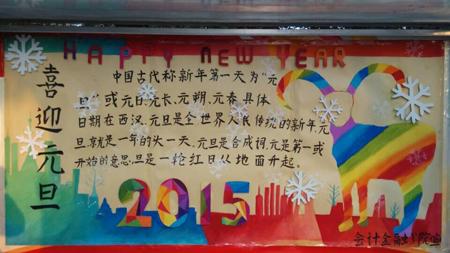 HAPPY NEW YEAR
喜迎元旦
中国古代称新年第一天为“元
旦”或元日、元长、元朔、元春,具体
日期在西汉,元旦是全世界人民传统的新年,元
旦,就是一年的头一天。元旦是合成词,元是第一或
开始的意思,旦是一轮红日从地面升起。
2015
会计金融学院宣